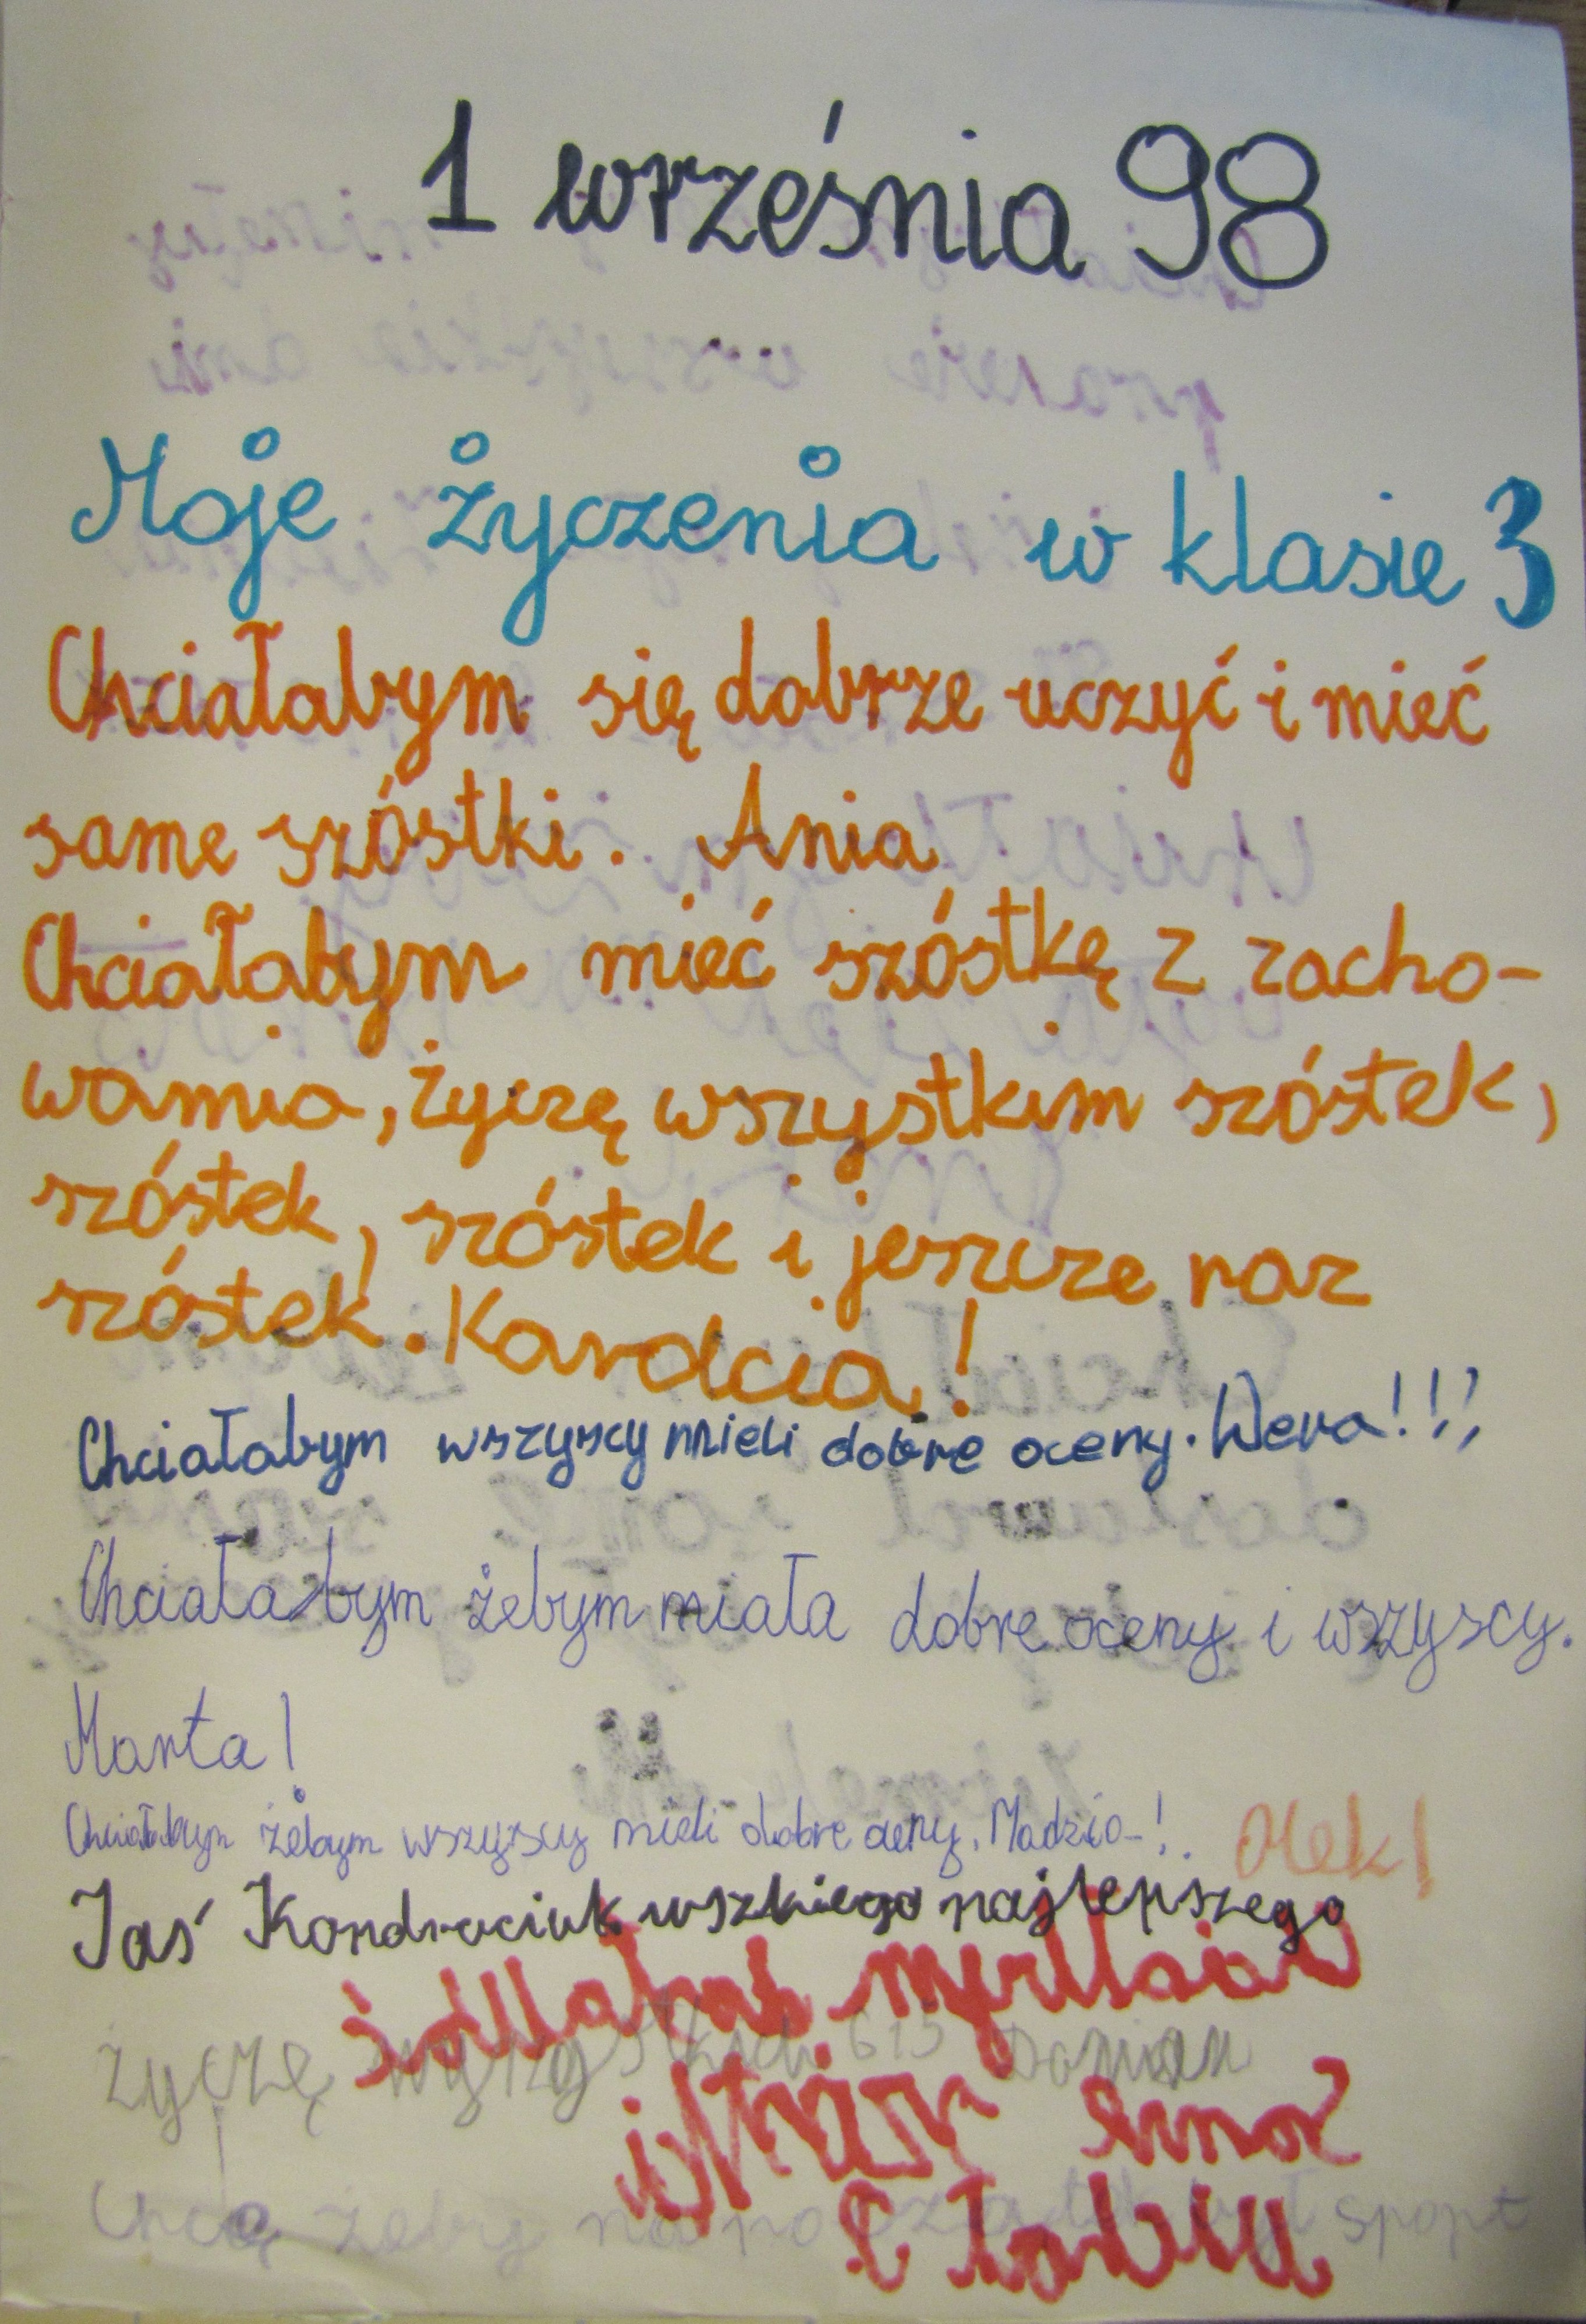 1 września 98
Moje życzenia w klasie 3
Chciałabym się dobrze uczyć i mieć
same szóstki. Ania
Chciałabym mieć szóstkę z zacho-
wania, życzę wszystkim szóstek,
szóstek, szóstek i jeszcze raz
szóstek. Karolcia!
Chciałabym wszyscy mieli dobre oceny. Wera!!!
Chciałabym żebym miała dobre oceny i wszyscy.
Marta!
Chciałabym żebym wszyscy mieli dobre oceny. Madzia-!
Olek!
Jaś Kondraciuk wszkiego najlepszego
Życzę 6 i 5 Damian
Chcę żeby na początek był sport